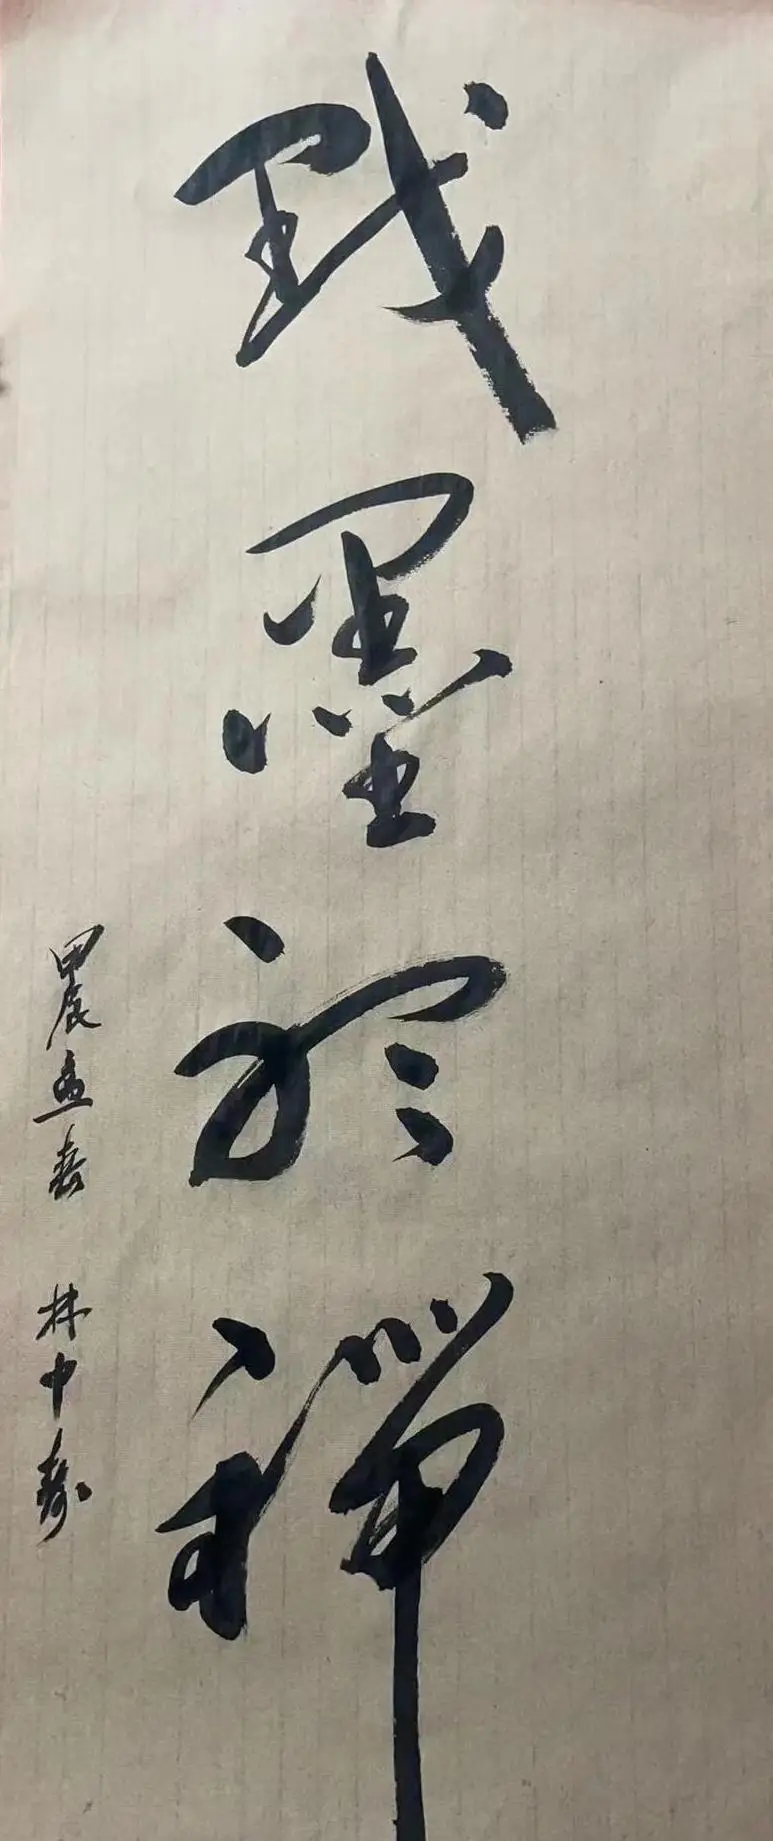 戏墨于禅
甲辰孟春 林中寿